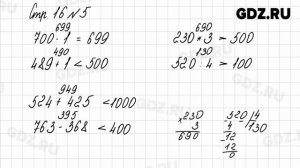 GDZ.RU
Стр. 16 №5
699 690
700 : 1 = 699 230 * 3 > 500
490 130
489 + 1 < 500 520 : 4 > 100
949
524 + 425 < 1000
395
763 - 368 < 400
× 230
3
690
520 4
4 130
12
12
0
GDZ.RU